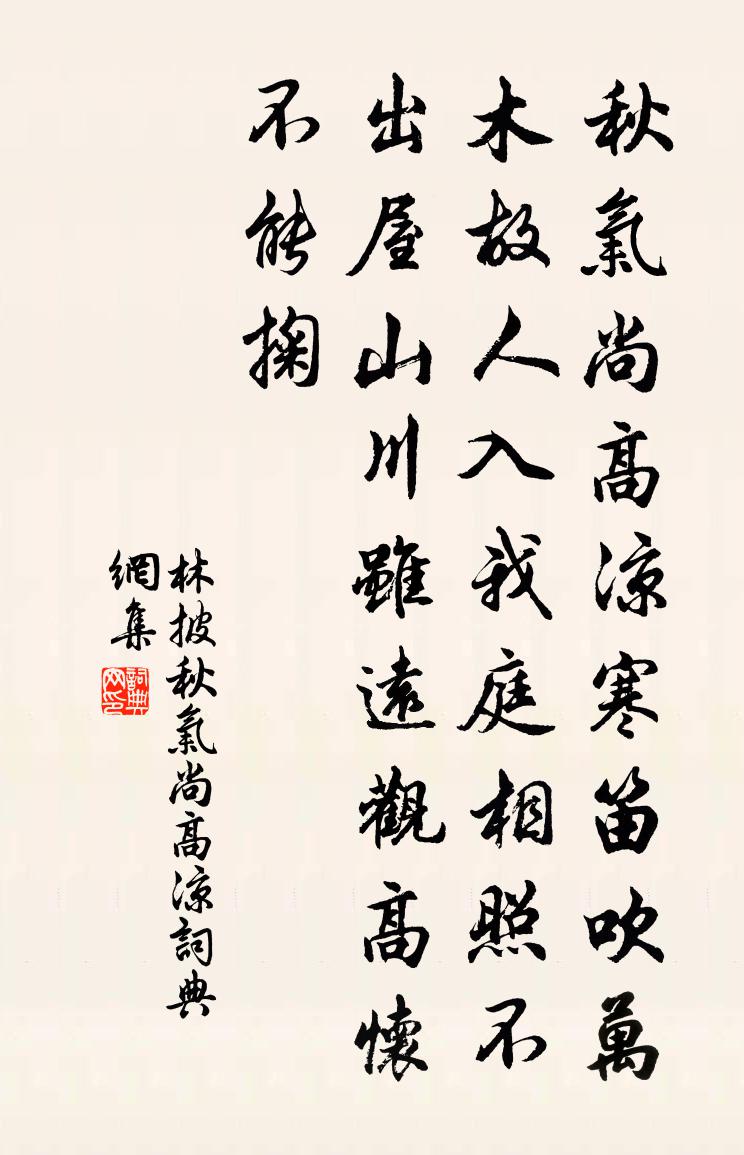 秋氣尚高涼寒笛吹萬
木故人入我庭相照不
出屋山川雖遠觀高懷
不能掬
林披秋氣尚高涼詞典
網集
詞典
网印